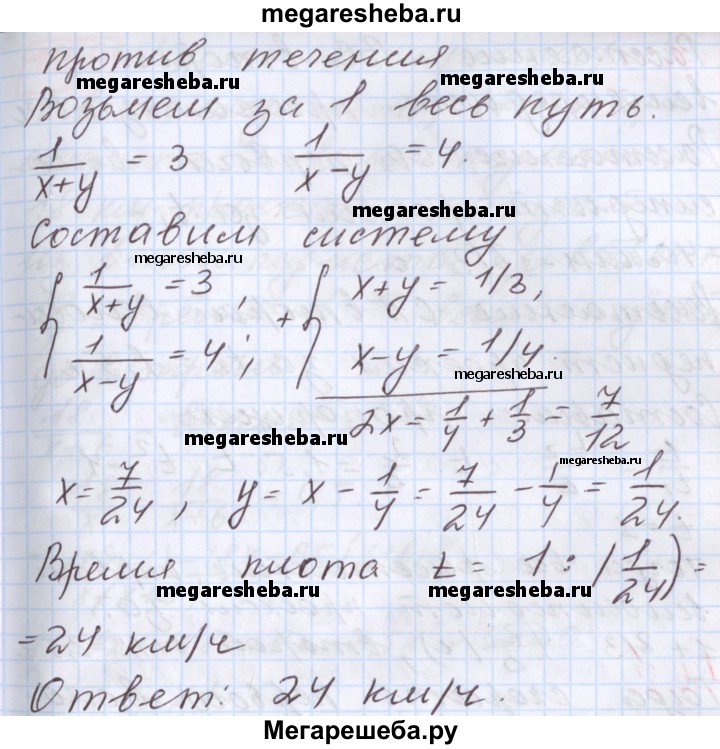 megaresheba.ru
против течения
megaresheba.ru megaresheba.ru
Возьмем за 1 весь путь.
1/(x+y) = 3 1/(x-y) = 4.
megaresheba.ru
Составим систему
megaresheba.ru
{ 1/(x+y) = 3, + { x+y = 1/3,
1/(x-y) = 4; x-y = 1/4.
megaresheba.ru
2x = 1/4 + 1/3 = 7/12
megaresheba.ru
megaresheba.ru
x = 7/24, y = x - 1/4 = 7/24 - 1/4 = 1/24.
Время плота t = 1 : (1/24) =
megaresheba.ru megaresheba.ru
= 24 км/ч
Ответ: 24 км/ч.
Мегарешеба.ру